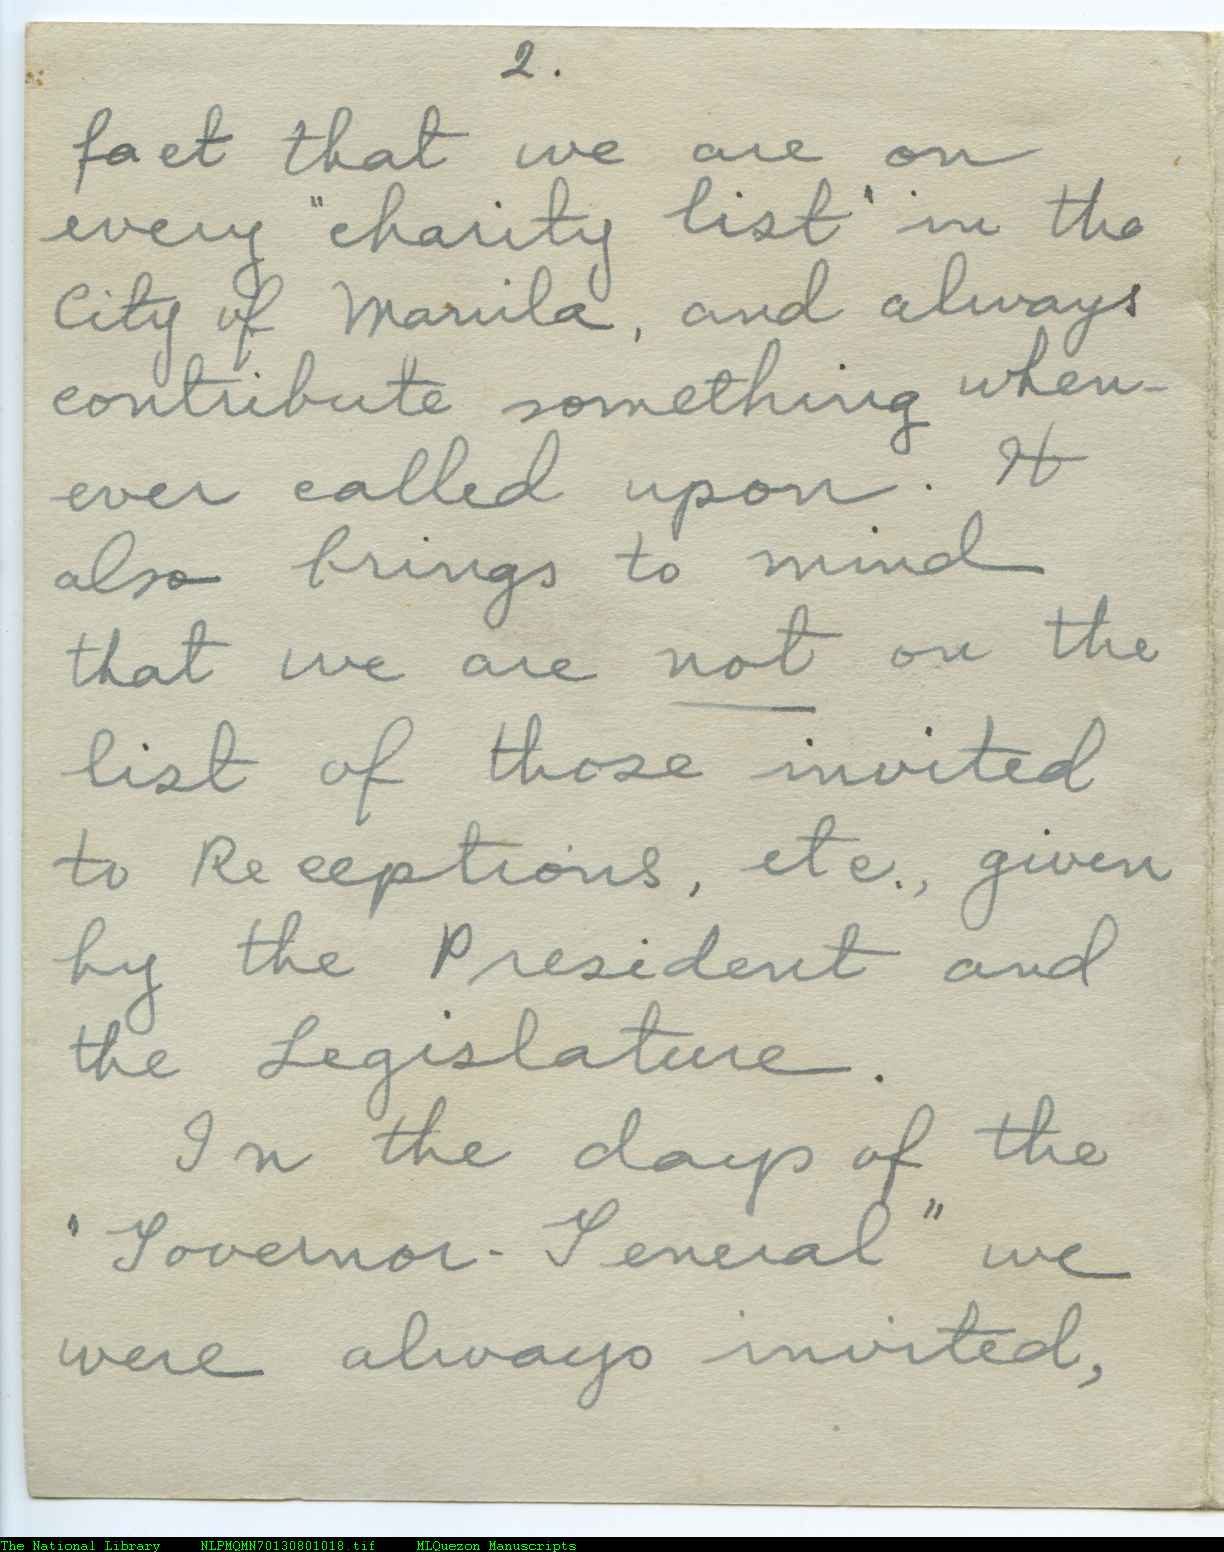 2.
fact that we are on
every "charity list" in the
City of Manila, and always
contribute something when-
ever called upon. It
also brings to mind
that we are not on the
list of those invited
to Receptions, etc., given
by the President and
the Legislature.
In the days of the
"Governor-General" we
were always invited,
The National Library NLPMQMN70130801018.tif MLQuezon Manuscripts